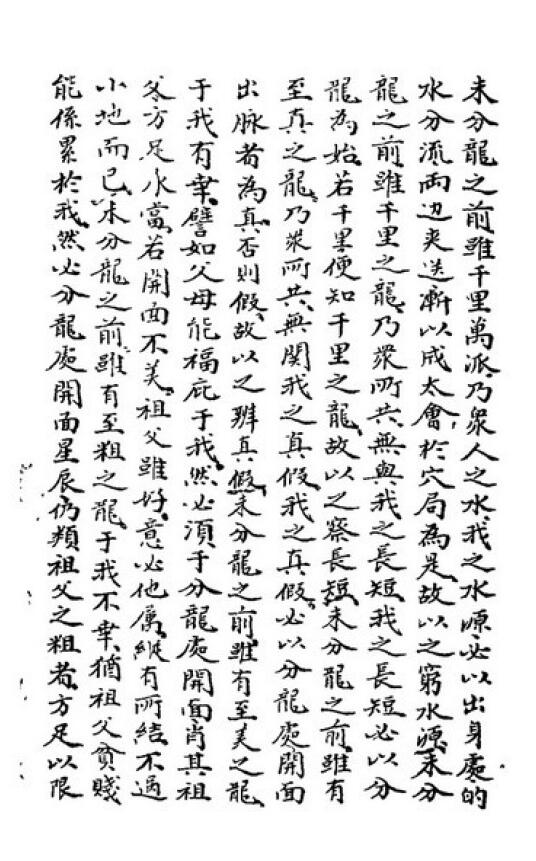 未分龍之前雖千里萬派乃衆人之水我之水源必以出身處的
水分流両边夾送漸以成太會於穴局為是故以之窮水源未分
龍之前雖千里之龍乃衆所共無與我之長短我之長短必以分
龍為始若千里便知千里之龍故以之察長短未分龍之前雖有
至真之龍乃衆所共無関我之真假我之真假必以分龍處開面
出脉者為真否則假故以之辨真假未分龍之前雖有至美之龍
于我有幸譬如父母能福庇于我然必須于分龍處開面肖其祖
父方足水當若開面不美祖父雖好意必他属縦有所結不過
小地而已未分龍之前雖有至粗之龍于我不幸猶祖父貧賤
能係累於我然必分龍處開面星辰仍類祖父之粗者方足以限